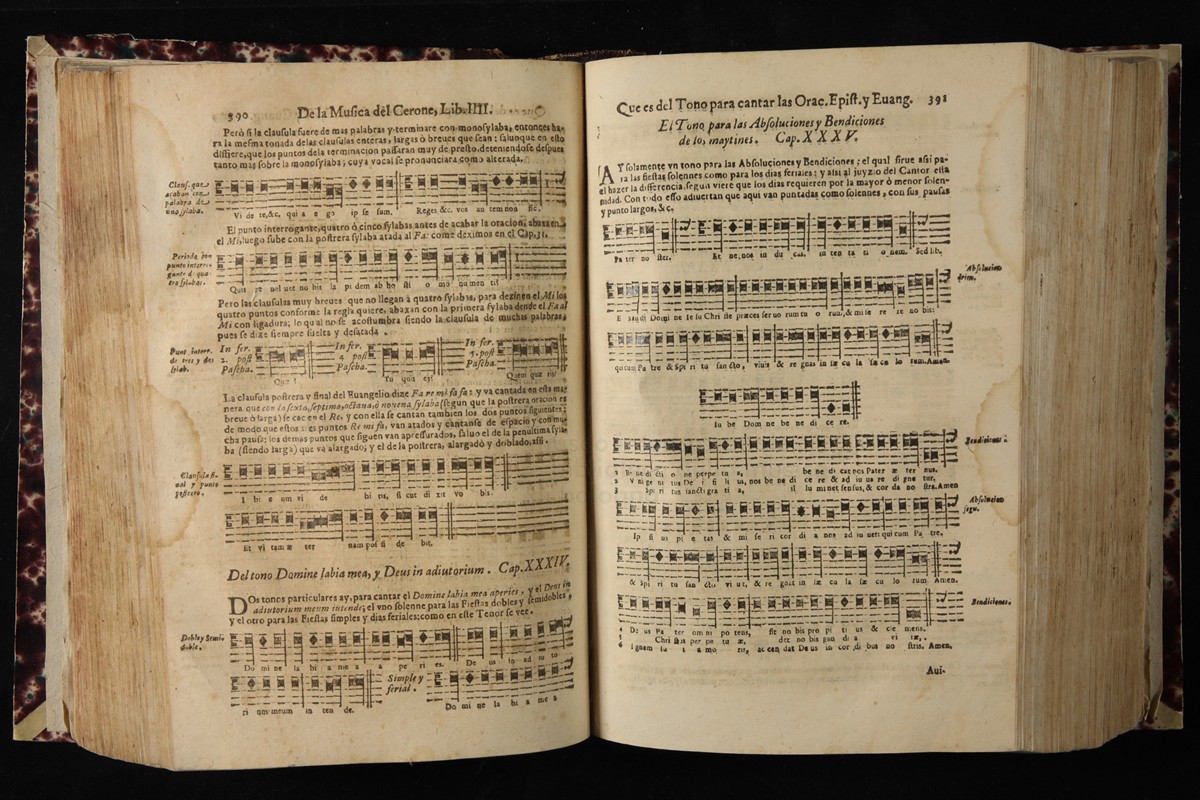 390 De la Musica del Cerone, Lib. IIII.
Però si la clausula fuere de mas palabras y terminare con monosylaba, entonces ha-
ra la mesma tonada de las clausulas enteras, largas ò breues que sean: saluo que en esto
differe, que los puntos de la terminacion passaran muy de presto, deteniendose despues
tanto mas sobre la monosylaba; cuya vocal se pronunciarà como alterada.
Claus. que
acaban con
palabra de
vno sylaba.
Vi de te, &c. qui a e go ip se sum. Reges &c. vos au tem non sic.
El punto interrogante, quatro ò cinco sylabas antes de acabar la oracion, abaxa en
el Mi, luego sube con la postrera sylaba atada al Fa: come deximos en el Cap. 31.
Periodo con
punto interro-
gante d qua-
tro sylabas.
Quis re uol uet no bis la pi dem ab ho sti o mo nu men ti?
Pero las clausulas muy breues que no llegan à quatro sylabas, para dezir en el Mi los
quatro puntos conforme la regla quiere, abaxan con la primera sylaba dende el Fa al
Mi con ligadura; lo qual no se acostumbra siendo la clausula de muchas palabras,
pues se dize siempre suelta y desatada.
Punt. interr.
de tres y dos
sylab.
In fer.
2. post
Pascha.
In fer.
4. post
Pascha.
In fer.
5. post
Pascha.
Quæ? Tu quis es? Quem quæ ris?
La clausula postrera y final del Euangelio dize Fa re mi fa fa: y va cantada en esta ma-
nera que con la sexta, septima, octaua, ò nouena sylaba (segun que la postrera oracion es
breue ò larga) se cae en el Re, y con ella se cantan tambien los dos puntos siguientes;
de modo que estos tres puntos Re mi fa, van atados y cantanse de espacio y con mu-
cha pausa; los demas puntos que siguen van apressurados, saluo el de la penultima syla-
ba (siendo larga) que va alargado; y el de la postrera, alargado y doblado, assi.
Clausula fi-
nal y punto
postrero.
I bi e um vi de bi tis, si cut di xit vo bis.
Et vi tam æ ter nam pos si de bit.
Del tono Domine labia mea, y Deus in adiutorium. Cap. XXXIV.
DOs tonos particulares ay, para cantar el Domine labia mea aperies, y el Deus in
adiutorium meum intende; el vno solenne para las Fiestas dobles y semidobles,
y el otro para las Fiestas simples y dias feriales: como en este Tenor se vee.
Doble y Semi-
doble.
Do mi ne la bi a me a a pe ri es. De us in ad iu to
ri um meum in ten de.
Simple y
ferial.
Do mi ne la bi a me a
Que es del Tono para cantar las Orac. Epist. y Euang. 391
El Tono para las Absoluciones y Bendiciones
de los maytines. Cap. XXXV.
AY solamente vn tono para las Absoluciones y Bendiciones; el qual sirue assi pa-
ra las fiestas solennes como para los dias feriales; y assi al juyzio del Cantor està
el hazer la differencia, segun viere que los dias requieren por la mayor ò menor solen-
nidad. Con todo esso aduiertan que aqui van puntadas como solennes, con sus pausas
y punto largos, &c.
Pa ter no ster. Et ne nos in du cas, in ten ta ti o nem. Sed lib.
Absolucion
prim.
E xau di Domi ne Ie su Chri ste præces ser uo rum tu o rum, & mi se re re no bis:
qui cum Pa tre & Spi ri tu san cto, viuis & re gnas in sæ cu la sæ cu lo rum. Amen.
Iu be Dom ne be ne di ce re.
Bendiciones.
1 Be ne di cti o ne perpe tu a, be ne di cat nos Pater æ ter nus.
2 V ni ge ni tus De i fi li us, nos be ne di ce re & ad iu ua re di gne tur,
3 Spi ri tus sancti gra ti a, il lu mi net sensus, & cor da no stra. Amen
Absolucion
segu.
Ip si us pi e tas & mi se ri cor di a nos ad iu uet: qui cum Pa tre,
& Spi ri tu san cto vi uit, & re gnat in sæ cu la sæ cu lo rum Amen.
Bendiciones.
4 De us Pa ter om ni po tens, sit no bis pro pi ti us & cle mens.
5 Chri stus per pe tu æ, det no bis gau di a vi tæ.
6 Ignem su i a mo ris, ac cen dat De us in cor di bus no stris. Amen.
Aui-